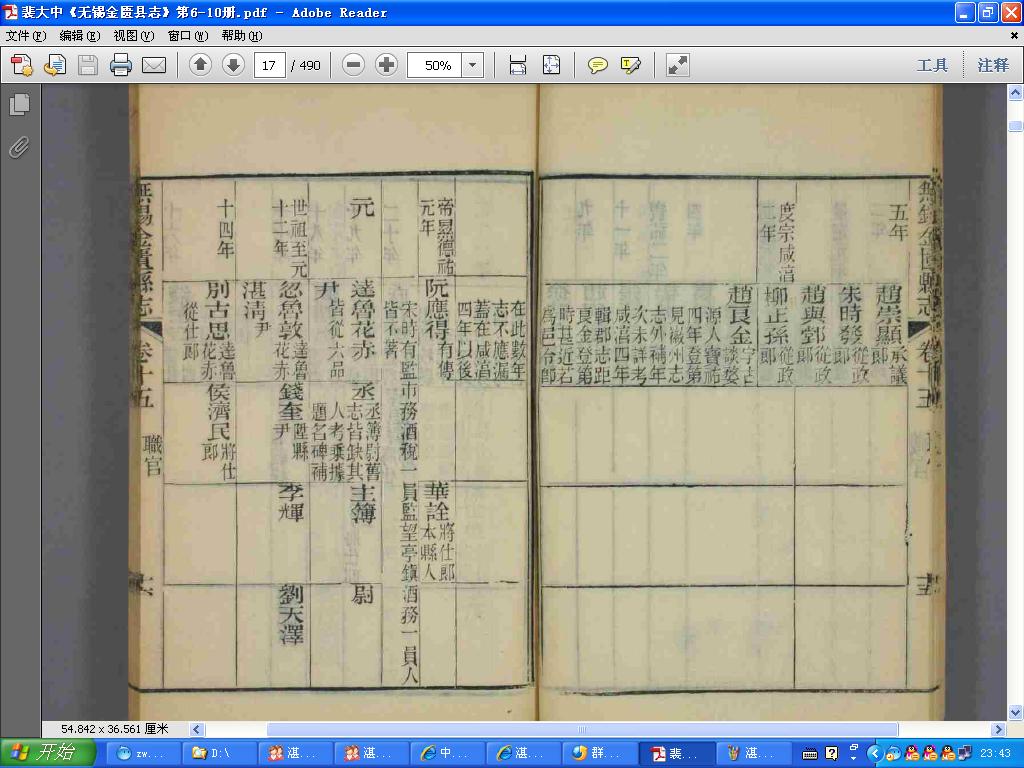 裴大中《无锡金匮县志》第6-10册.pdf - Adobe Reader
文件(F) 编辑(E) 视图(V) 窗口(W) 帮助(H)
17 / 490
50%
工具
注释
五年
趙崇顥承議郎
朱時發從政郎
趙與鄄從政郎
度宗咸淳
二年
柳正孫從政郎
趙良金字古
談婺
源人寶祐
四年登第
見徽州志
志外補年
次未詳考
咸淳四年
輯郡志距
良金登第
時甚近若
爲邑令卽
無錫金匱縣志
卷十五
在此數年
志不應漏
蓋在咸淳
四年以後
帝㬎德祐
元年
阮應得有傳
華詮將仕郎
本縣人
宋時有監市務酒稅一員監望亭鎮酒務一員人
皆不著
元
達魯花赤
丞丞簿尉舊
志皆缺其
人考乘據
題名碑補
主簿
尉
尹皆從六品
世祖至元
十二年
忽魯敦達魯
花赤
錢奎陞縣
尹
李輝
劉天澤
湛淸尹
十四年
別古思達魯
花赤
從仕郎
侯濟民將仕
郎
無錫金匱縣志
卷十五
職官
54.842 x 36.561 厘米
开始
zw...
D:\
湛...
湛...
中...
湛...
群...
裴...
湛...
23:43